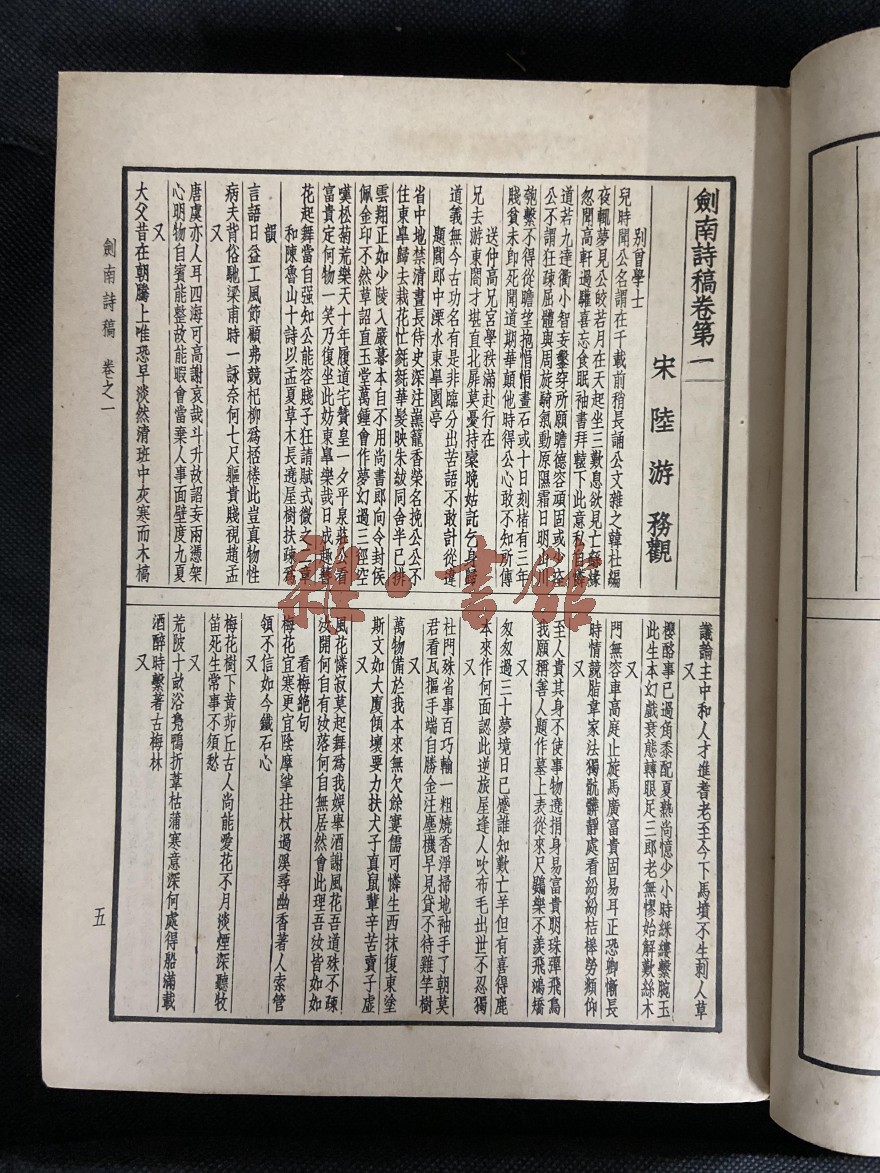 劍南詩稿卷第一
宋 陸 游 務觀
別曾學士
兒時聞公名謂在千載前稍長誦公文雜之韓杜編
夜輒夢見公皎若月在天起坐三歎息欲見亡繇緣
忽聞高軒過驩喜忘食眠袖書拜轅下此意私自憐
道若九達衢小智妄鑿穿所願瞻德容頑固或少痊
公不謂狂疎屈體與周旋騎氣動原隰霜日明山川
匏繫不得從瞻望抱悁悁畫石或十日刻楮有三年
賤貧未即死聞道期華顛他時得公心敢不知所傳
送仲高兄宮學秩滿赴行在
兄去游東閤才堪直北扉莫憂持槖晚姑記乞身歸
道義無今古功名有是非臨分出苦語不敢計從違
題閻郎中溧水東皐園亭
省中地禁清晝長侍史深注熏籠香榮名挽公公不
住東皐歸去栽花忙毿毿華髮映朱紱同舍半已排
雲翔正如少陵入嚴幕本自不用尚書郎向令封侯
佩金印不然草詔直玉堂萬鍾會作夢幻過三徑空
嘆松菊荒樂天十年履道宅贊皇一夕平泉莊公看
富貴定何物一笑乃復坐此妨東皐樂哉日成趣藝
花起舞當自強知公能容賤子狂請賦式微之
和陳魯山十詩以孟夏草木長遶屋樹扶疎爲
韻
言語日益工風節顧弗競杞柳爲桮棬此豈真物性
病夫背俗馳梁甫時一詠奈何七尺軀貴賤視趙孟
又
唐虞亦人耳四海可高謝哀哉斗升故詔妄兩憑架
心明物自賓能整故能暇會當棄人事面壁度九夏
又
大父昔在朝騰上唯恐早淡然清班中灰寒而木槁
議論主中和人才進耆老至今下馬墳不生刺人草
又
櫻酪事已過角黍配夏熟尚憶少小時綵縷繫腕玉
此生本幻戲衰態轉眼足三郎老無憀始解歎絲木
又
門無容車高庭止旋馬廣富貴固易耳正恐卿慚長
時情競脂韋家法獨骯髒靜處看紛紛桔槔勞頫仰
又
至人貴其身不使事物遶捐身易富貴明珠彈飛鳥
我願稱善人題作墓上表從來尺鷃樂不羨飛鴻矯
又
匆匆過三十夢境日已蹙誰知歎亡羊但有喜得鹿
本來作何面認此逆旅屋逢人吹布毛出世不忍獨
又
杜門殊省事百巧輸一粗燒香淨掃地袖手了朝莫
君看瓦摳手端自勝金注塵機早見貸不待雞竿樹
又
萬物備於我本來無欠餘窶儒可憐生西抹復東塗
斯文如大廈傾壞要力扶犬子真鼠輩辛苦賣子虛
又
風花憐寂莫起舞爲我娛舉酒謝風花吾道殊不疎
汝開何自有汝落何自無居然會此理吾汝皆如如
看梅絶句
梅花宜寒更宜陰摩挲拄杖過溪尋幽香著人索管
領不信如今鐵石心
又
梅花樹下黄茆丘古人尚能愛花不月淡煙深聽牧
笛死生常事不須愁
又
荒陂十畝浴鳧鴨折葦枯蒲寒意深何處得船滿載
酒醉時繫著古梅林
又
劍南詩稿 卷之一
五
雜·書館